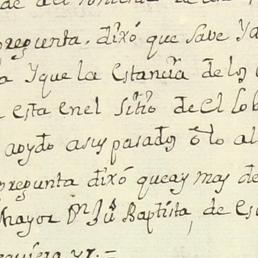 pregunta. dixó que save Ya
a Yque la estançia de los
esta enel sitio de el lob
a aoydo asus pasados ô lo al
pregunta dixó queay mas de
Mayor Dn Ju Baptista, de Es